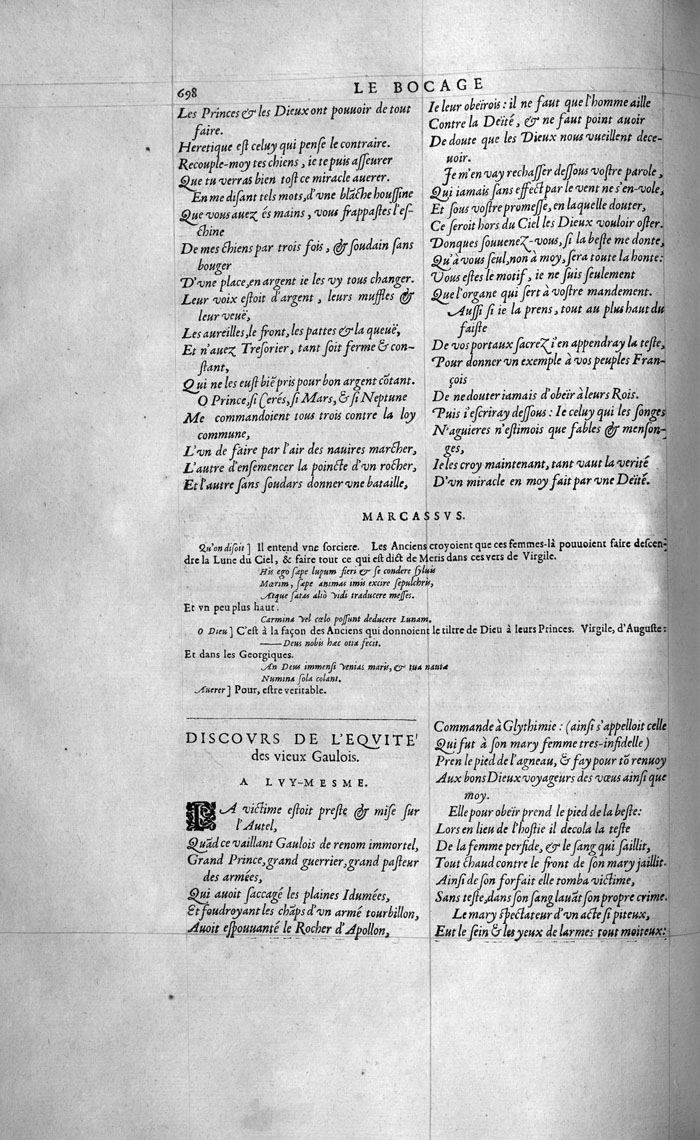 698
LE BOCAGE
Les Princes & les Dieux ont pouuoir de tout
faire.
Heretique est celuy qui pense le contraire.
Recouple-moy tes chiens, ie te puis asseurer
Que tu verras bien tost ce miracle auerer.
En me disant tels mots, d'vne blãche houssine
Que vous auez és mains, vous frappastes l'es-
chine
De mes chiens par trois fois, & soudain sans
bouger
D'vne place, en argent ie les vy tous changer.
Leur voix estoit d'argent, leurs muffles &
leur veuë,
Les aureilles, le front, les pattes & la queuë,
Et n'auez Tresorier, tant soit ferme & con-
stant,
Qui ne les eust biẽ pris pour bon argent cõtant.
O Prince, si Cerés, si Mars, & si Neptune
Me commandoient tous trois contre la loy
commune,
L'vn de faire par l'air des nauires marcher,
L'autre d'ensemencer la poincte d'vn rocher,
Et l'autre sans soudars donner vne bataille,
Ie leur obeïrois : il ne faut que l'homme aille
Contre la Deïté, & ne faut point auoir
De doute que les Dieux nous vueillent dece-
uoir.
Je m'en vay rechasser dessous vostre parole,
Qui iamais sans effect par le vent ne s'en-vole,
Et sous vostre promesse, en laquelle douter,
Ce seroit hors du Ciel les Dieux vouloir oster.
Donques souuenez-vous, si la beste me donte,
Qu'à vous seul, non à moy, sera toute la honte:
Vous estes le motif, ie ne suis seulement
Que l'organe qui sert à vostre mandement.
Aussi si ie la prens, tout au plus haut du
faiste
De vos portaux sacrez i'en appendray la teste,
Pour donner vn exemple à vos peuples Fran-
çois
De ne douter iamais d'obeïr à leurs Rois.
Puis i'escriray dessous : Ie celuy qui les songes
N'aguieres n'estimois que fables & menson-
ges,
Ie les croy maintenant, tant vaut la verité
D'vn miracle en moy fait par vne Deïté.
MARCASSVS.
Qu'on disoit ] Il entend vne sorciere. Les Anciens croyoient que ces femmes-là pouuoient faire descen-
dre la Lune du Ciel, & faire tout ce qui est dict de Meris dans ces vers de Virgile.
His ego sæpe lupum fieri & se condere syluis
Mœrim, sæpe animas imis excire sepulchris,
Atque satas aliò vidi traducere messes.
Et vn peu plus haut.
Carmina vel cœlo possunt deducere Lunam.
O Dieu ] C'est à la façon des Anciens qui donnoient le tiltre de Dieu à leurs Princes. Virgile, d'Auguste:
—— Deus nobis hæc otia fecit.
Et dans les Georgiques.
An Deus immensi venias maris, & tua nautæ
Numina sola colant.
Auerer ] Pour, estre veritable.
DISCOVRS DE L'EQVITE'
des vieux Gaulois.
A LVY-MESME.
LA victime estoit preste & mise sur
l'Autel,
Quãd ce vaillant Gaulois de renom immortel,
Grand Prince, grand guerrier, grand pasteur
des armées,
Qui auoit saccagé les plaines Idumées,
Et foudroyant les chãps d'vn armé tourbillon,
Auoit espouuanté le Rocher d'Apollon,
Commande à Glythimie : (ainsi s'appelloit celle
Qui fut à son mary femme tres-infidelle)
Pren le pied de l'agneau, & fay pour tõ renuoy
Aux bons Dieux voyageurs des vœus ainsi que
moy.
Elle pour obeïr prend le pied de la beste:
Lors en lieu de l'hostie il decola la teste
De la femme perfide, & le sang qui saillit,
Tout chaud contre le front de son mary jaillit.
Ainsi de son forfait elle tomba victime,
Sans teste, dans son sang lauãt son propre crime.
Le mary spectateur d'vn acte si piteux,
Eut le sein & les yeux de larmes tout moiteux: